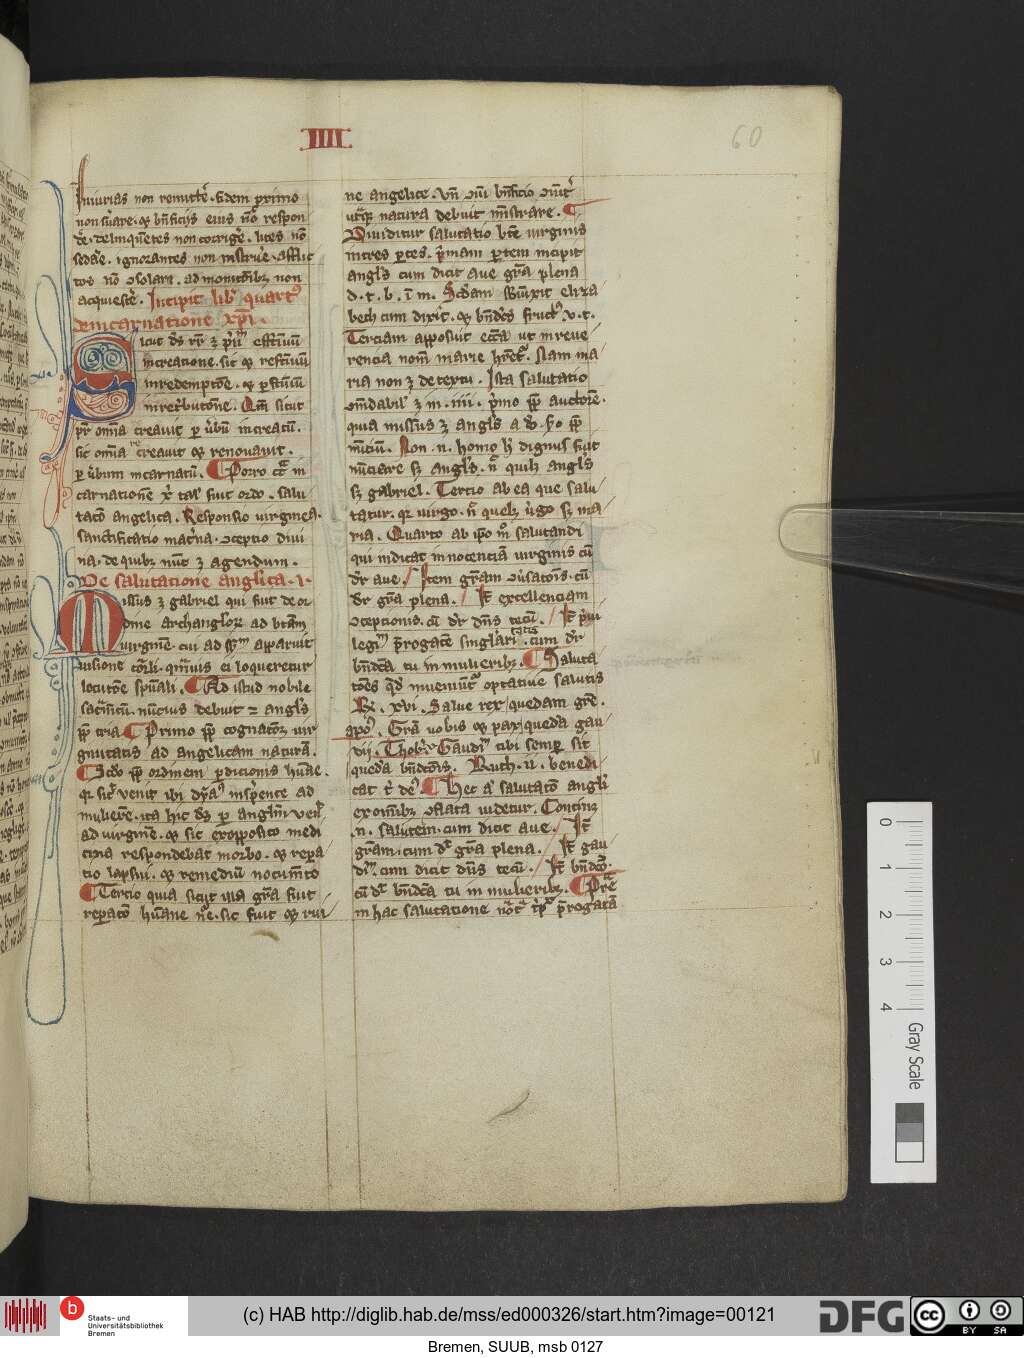 IIII
60
iniurias non remittere. fidem primo
non seruare. et beneficiis eius non respon
dere. delinquentes non corrigere. lites non
sedare. ignorantes non instruere. afflic
tos non consolari. admonitionibus non
acquiescere. Incipit liber quartus
de incarnatione christi.
Sicut deus
in creatione. sic et
in redemptione. et
in retributione. Quoniam sicut
pater omnia creauit per uerbum increatum.
sic omnia recreauit et renouauit.
per uerbum incarnatum. Porro circa in
carnationem christi talis fuit ordo. salu
tatio angelica. Responsio uirginea.
sanctificatio materna. conceptio diui
na. de quibus nunc est agendum.
De salutatione anglica. i.
Missus est gabriel qui fuit de or
dine archangelorum ad beatam
uirginem. cui apparuit
uisione corporali. quamuis ei loqueretur
locutione spirituali. Ad istud nobile
sacrificium. nuncius debuit esse angelus
propter tria. Primo propter cognationem uir
ginitatis ad angelicam naturam.
Secundo propter ordinem perditionis humane.
quia sicut uenit ibi dyabolus in serpente ad
mulierem. ita hic deus per angelum uenit
ad uirginem. et sic ex opposito medi
cina respondebat morbo. et repara
tio lapsui. et remedium nocumento
Tercio quia sicut illa gratia fuit
reparatio humane nature. sic fuit et rui
ne angelice. unde omni beneficio
utrique natura debuit ministrare.
Diuiditur salutatio beate uirginis
in tres partes. primam partem incipit
angelus cum dicit aue gratia plena
d. t. b. i m. Secundam subiunxit eliza
bech cum dixit. et benedictus fructus v. t.
Terciam apposuit ecclesia ut in reue
rencia nomen marie haberetur. Nam ma
ria non est de textu. Ista salutatio
commendabilis est in. iiii. primo propter auctorem.
quia missus est angelus a deo. secundo propter
nuncium. Non. n. homo licet dignus fuit
nunciare sed angelus. nec quilibet angelus
sed gabriel. Tercio ab ea que salu
tatur. quia uirgo. nec quelibet uirgo sed ma
ria. Quarto ab ipso modo salutandi
qui indicat innocentiam uirginis cum
dicitur aue. Item gratiam conuersationis. cum
dicitur gratia plena. Item excellenciam
conceptionis. cum dicitur dominus tecum. Item priui
legium prerogatiue singularis. cum dicitur
benedicta tu in mulieribus. Saluta
tiones quedam inueniuntur optatiue salutis
Re. xvi. Salue rex quedam gratie.
apo. Gratia uobis et pax quedam gau
dii. Thob. v. Gaudium tibi semper sit
quedam benedictionis. Ruth. ii. benedi
cat tibi deus. Hec autem salutatio angeli
ex omnibus conflata uidetur. Continet
.n. salutem. cum dicit aue. Item
gratiam. cum dicit gratia plena. Item gau
dium. cum dicit dominus tecum. Item benedictionem.
cum dicit benedicta tu in mulieribus. Preterea
in hac salutatione notatur triplex prerogatiua
0
1
2
3
4
Gray Scale
b
Staats- und
Universitätsbibliothek
Bremen
(c) HAB http://diglib.hab.de/mss/ed000326/start.htm?image=00121
DFG
cc
BY
SA
Bremen, SUUB, msb 0127